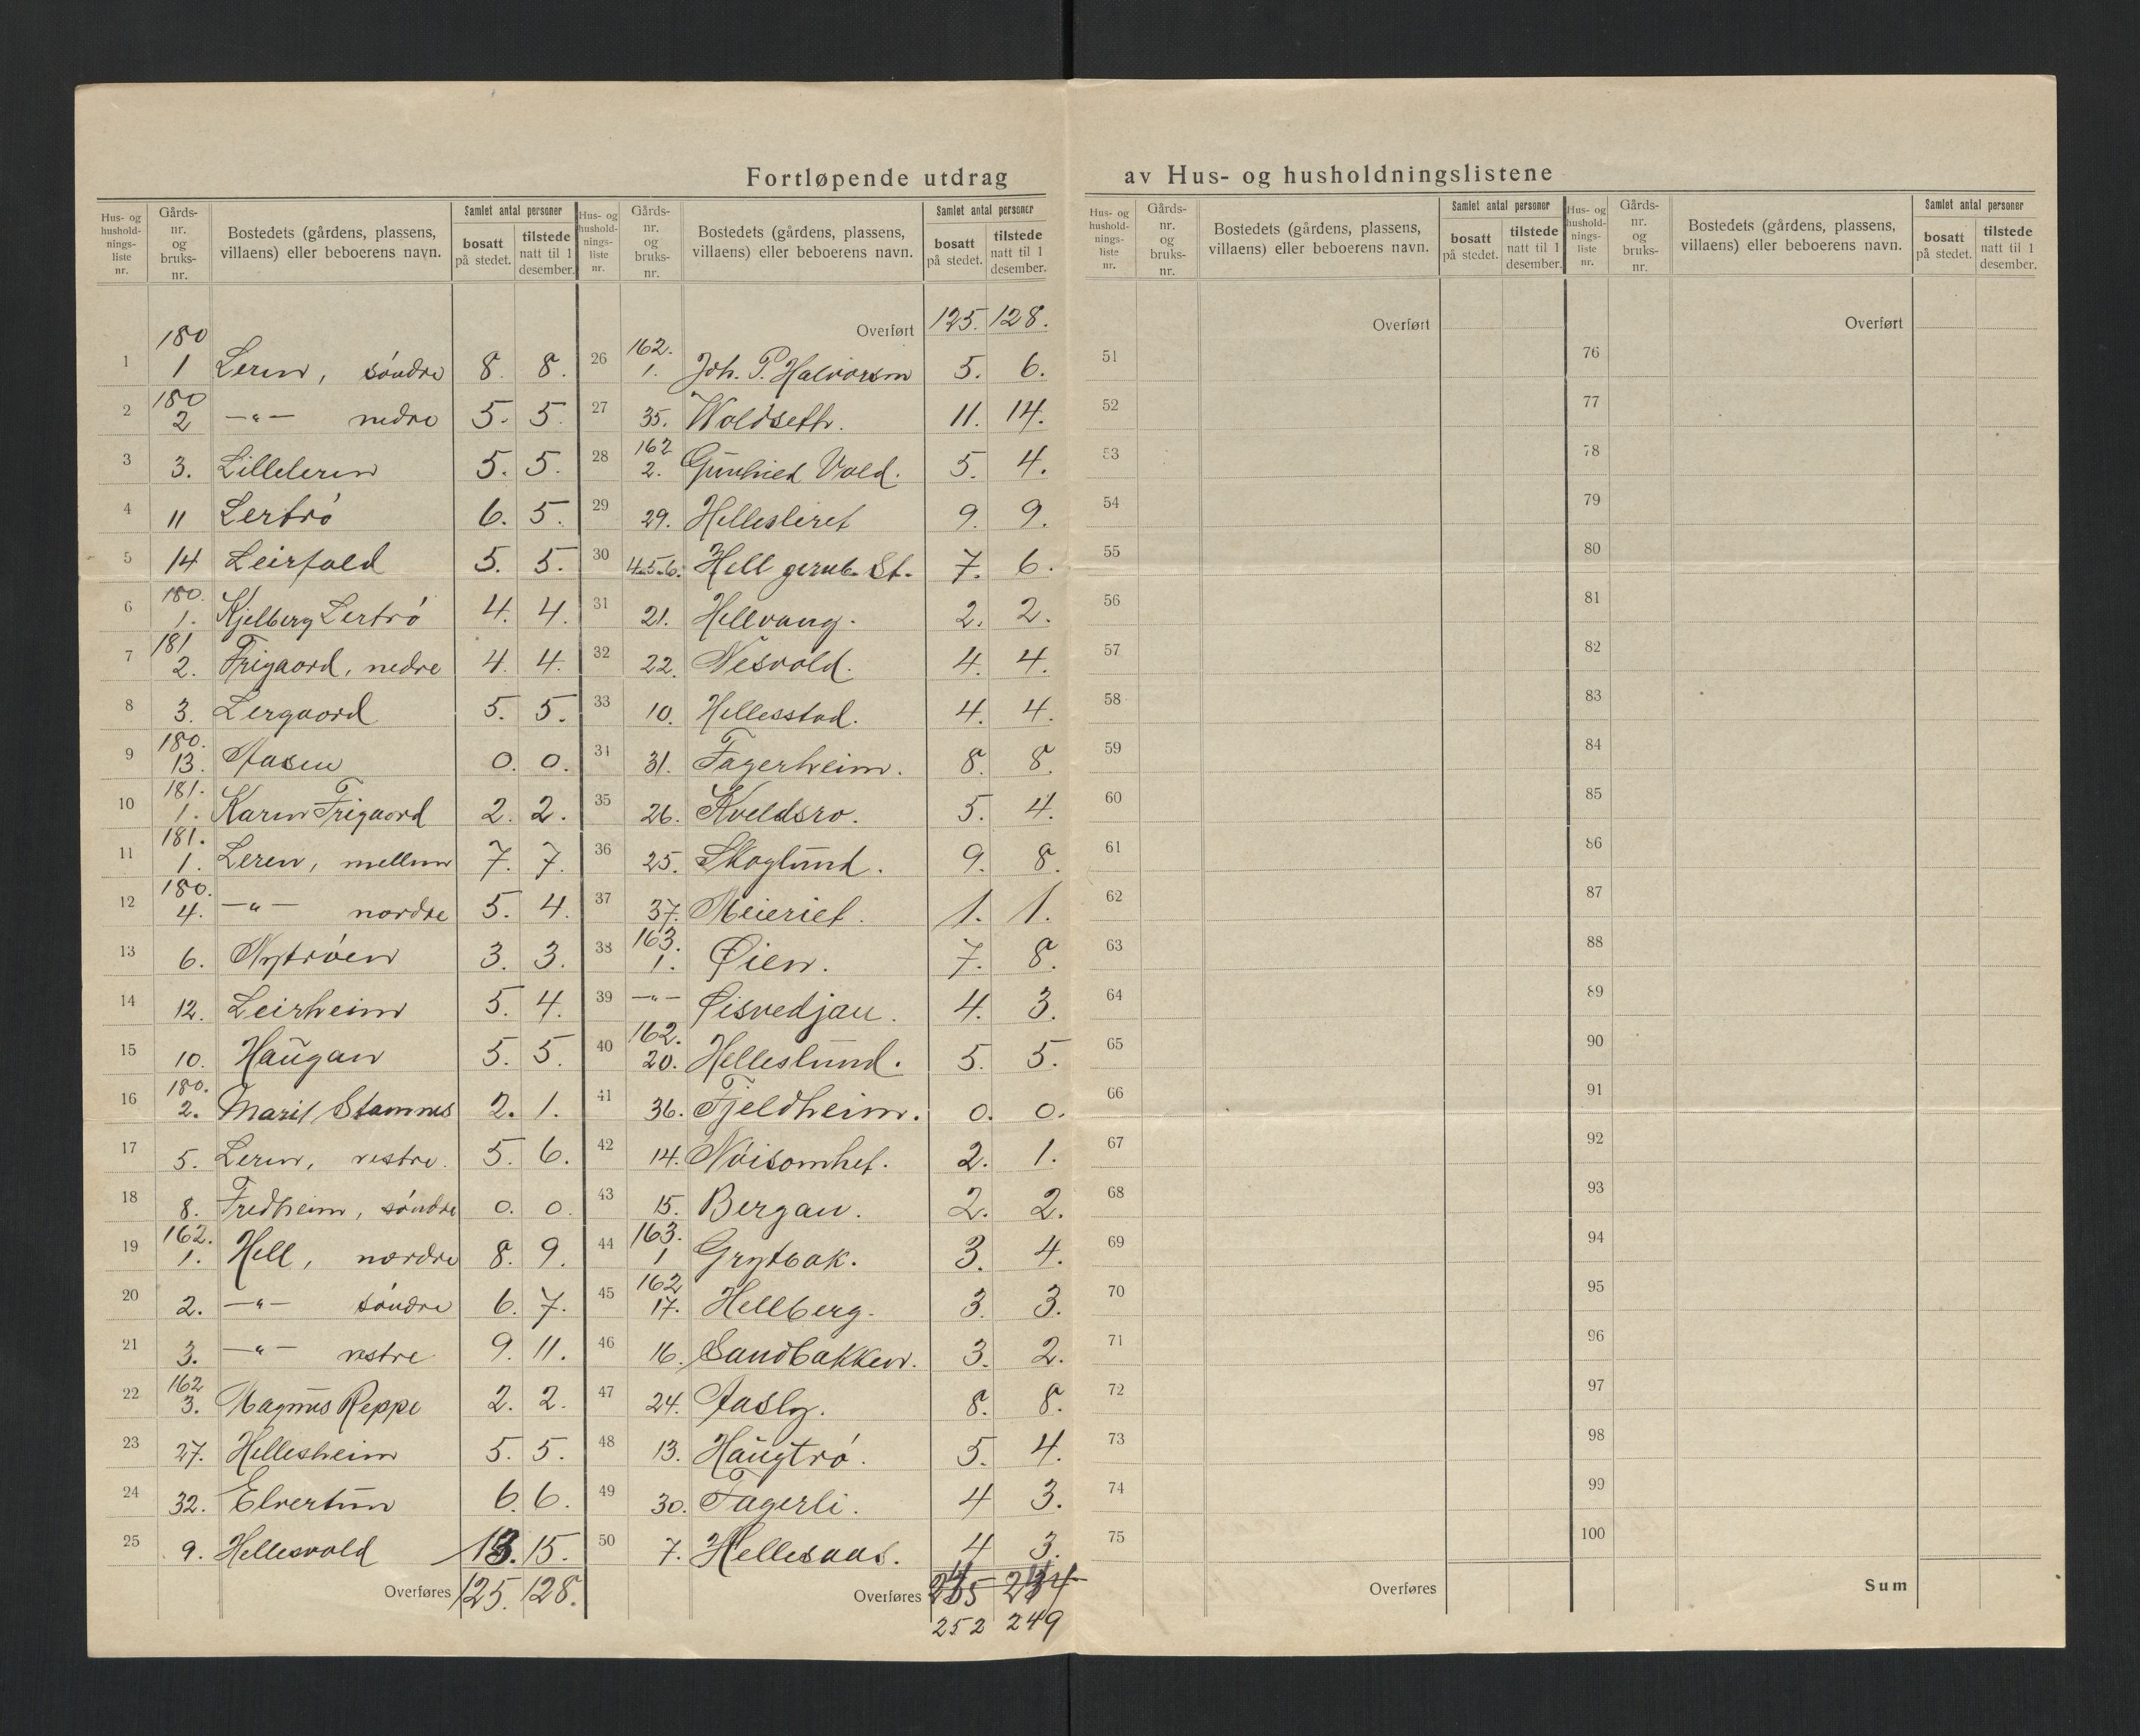 Fortløpende utdrag av Hus- og husholdningslistene
Hus- og husholdnings-liste nr. Gårds-nr. og bruks-nr. Bostedets (gårdens, plassens, villaens) eller beboerens navn. Samlet antal personer bosatt på stedet. tilstede natt til 1 desember.
1 180 1 Leren, søndre 8. 8.
2 180 2 —"— nedre 5. 5.
3 3. Lilleleren 5. 5.
4 11 Lertrø 6. 5.
5 14 Leirfald 5. 5.
6 180. 1. Kjelberg Lertrø 4. 4.
7 181 2. Frigaard, nedre 4. 4.
8 3. Lergaard 5. 5.
9 180. 13. Aasen 0. 0.
10 181. 1. Karen Frigaard 2. 2.
11 181. 1. Leren, mellem 7. 7.
12 180. 4. —"— nordre 5. 4.
13 6. Nytrøen 3. 3.
14 12. Leirheim 5. 4.
15 10. Haugan 5. 5.
16 180. 2. Marit Stamnes 2. 1.
17 5. Leren, vestre. 5. 6.
18 8. Fredheim, søndre 0. 0.
19 162. 1. Hell, nordre 8. 9.
20 2. —"— søndre 6. 7.
21 3. —"— vestre 9. 11.
22 162 3. Magnus Reppe 2. 2.
23 27. Hellesheim 5. 5.
24 32. Elvertun 6. 6.
25 9. Hellesvold 13. 15.
Overføres 125. 128.
Hus- og husholdnings-liste nr. Gårds-nr. og bruks-nr. Bostedets (gårdens, plassens, villaens) eller beboerens navn. Samlet antal personer bosatt på stedet. tilstede natt til 1 desember.
Overført 125. 128.
26 162. 1. Joh. P. Halvorsen 5. 6.
27 35. Woldseth. 11. 14.
28 162 2. Vold. 5. 4.
29 29. Hellesleret 9. 9.
30 4.5.6. Hell jernb. St. 7. 6.
31 21. Hellvang. 2. 2.
32 22. Nesvold. 4. 4.
33 10. Hellesstad. 4. 4.
34 31. Fagerheim. 8. 8.
35 26. Kveldsro. 5. 4.
36 25. Skoglund. 9. 8.
37 37. Meieriet. 1. 1.
38 163. 1. Øien. 7. 8.
39 —"— Øisvedjan. 4. 3.
40 162. 20. Helleslund. 5. 5.
41 36. Fjeldheim. 0. 0.
42 14. Nøisomhet. 2. 1.
43 15. Bergan. 2. 2.
44 163. 1 Grytbak. 3. 4.
45 162 17. Hellberg. 3. 3.
46 16. Sandbakken. 3. 2.
47 24. Aasly. 8. 8.
48 13. Haugtrø. 5. 4.
49 30. Fagerli. 4 3.
50 7. Hellesaas. 4 3.
Overføres
252 249
Hus- og husholdnings-liste nr. Gårds-nr. og bruks-nr. Bostedets (gårdens, plassens, villaens) eller beboerens navn. Samlet antal personer bosatt på stedet. tilstede natt til 1 desember.
Overført
51
52
53
54
55
56
57
58
59
60
61
62
63
64
65
66
67
68
69
70
71
72
73
74
75
Overføres
Hus- og husholdnings-liste nr. Gårds-nr. og bruks-nr. Bostedets (gårdens, plassens, villaens) eller beboerens navn. Samlet antal personer bosatt på stedet. tilstede natt til 1 desember.
Overført
76
77
78
79
80
81
82
83
84
85
86
87
88
89
90
91
92
93
94
95
96
97
98
99
100
Sum